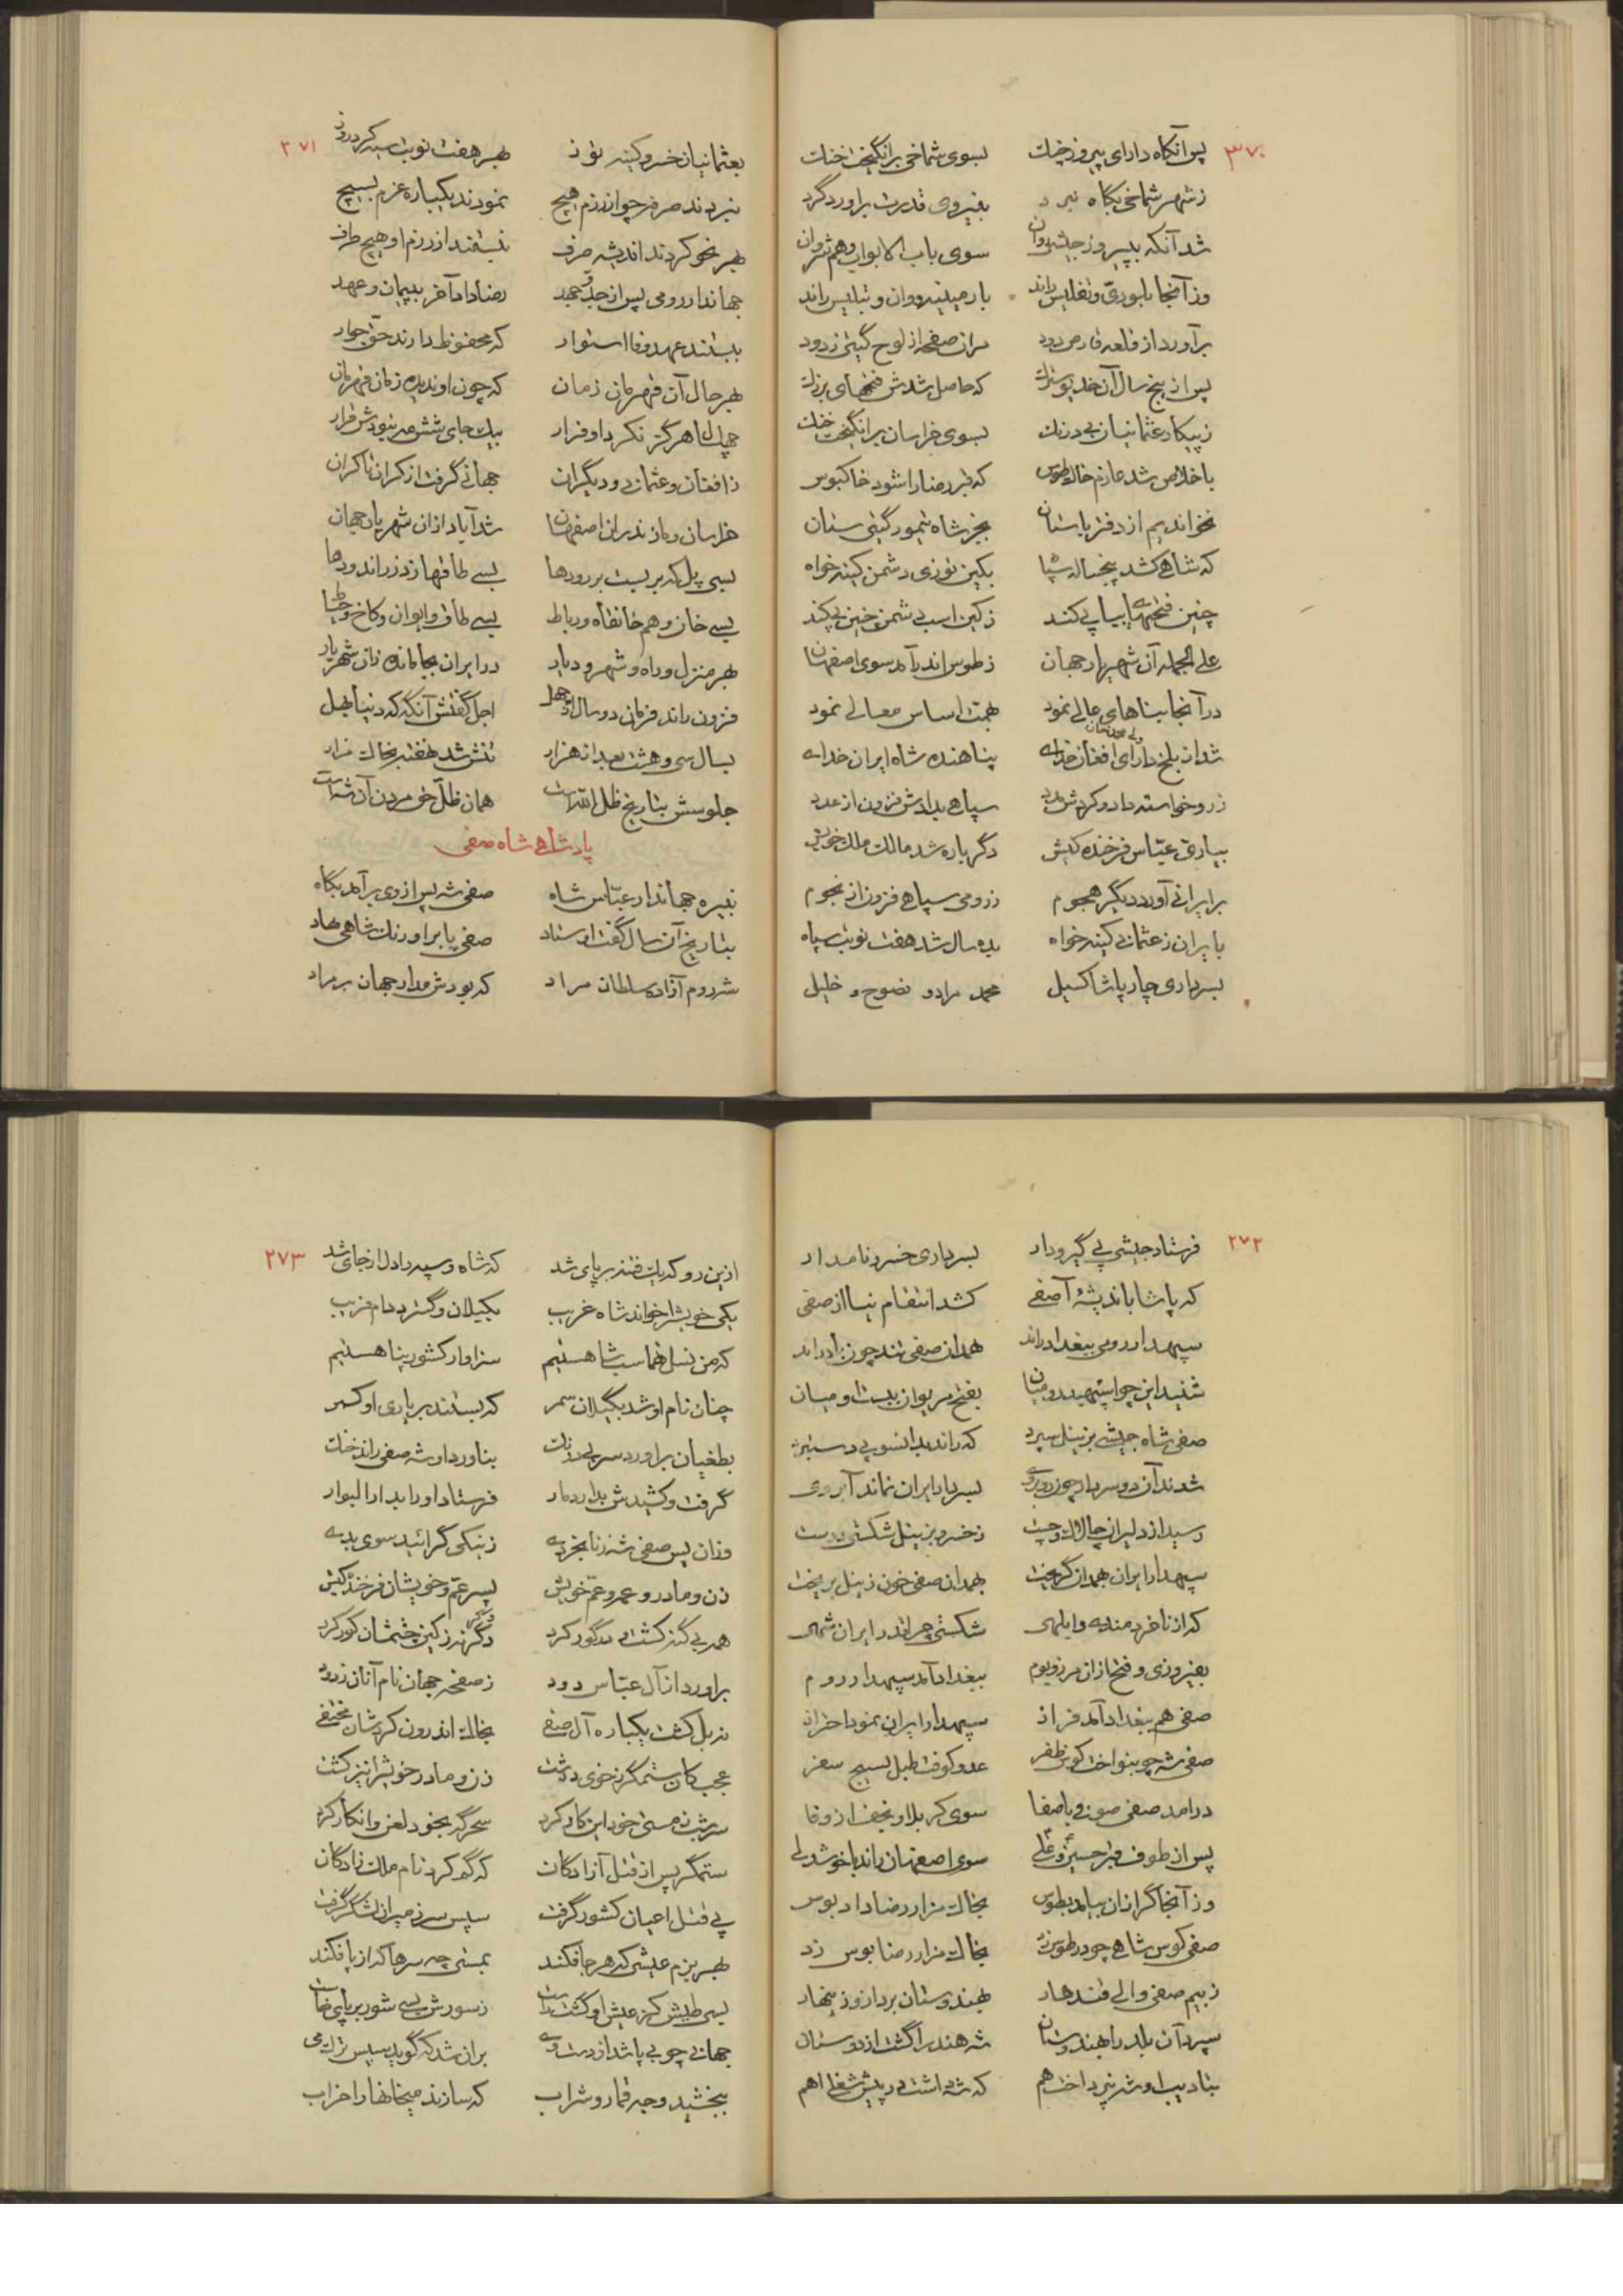 ۳۷۰
پس آنگاه دارای پیروز خنگ بسوی شماخی برانگیخت خنگ
ز شهر شماخی بگاه نبرد بنیروی قدرت براورد گرد
شد آنگه بپیروز جیشی روان سوی باب الابواب و هم شروان
وز آنجا بلوری و تفلیس راند بارمینیه و وان و تبلیس راند
برآورد از قلعه قارص دود مران صفحه از لوح گیتی زدود
پس از پنج سال آن خدیو سترگ که حاصل شدش فتحهای بزرگ
ز پیکار عثمانیان بی درنگ بسوی خراسان برانگیخت خنگ
باخلاص شد عازم خاک طوس که قبر رضا را شود خاکبوس
نخواندیم از دفتر باستان بجز شاه تیمور گیتی ستان
که شاهی کشد پنجساله سپا بکین توزی دشمن کینه خواه
چنین فتحهای پیاپی کند ز کین اسب دشمن چنین پی کند
علی الجمله آن شهریار جهان ز طوس اندر آمد سوی اصفهان
در آنجا بناهای عالی نمود بهمت اساس معالی نمود
شد از بلخ دارای افغان خدای پناهنده شاه ایران خدای
ولی محمد خان
زر و خواسته داد و کردش مدد سپاهی بدادش فزون از عدد
بیاری عباس فرخنده کیش دگر باره شد مالک ملک خویش
بر ایرانی آورد دیگر هجوم ز رومی سپاهی فزون از نجوم
بایران ز عثمانی کینه خواه بده سال شد هفت نوبت سپاه
بسرداری چار پاشا کسیل محمد مراد و نصوح و خلیل
۲۷۱
بعثمانیان خسرو کینه توز بهر هفت نوبت سیه کرد روز
نبردند صرفه چو از رزم هیچ نمودند یکباره عزم بسیج
بهر نحو کردند اندیشه صرف نبستند از رزم او هیچ طرف
جهاندار رومی پس از جد و جهد رضا داد آخر بپیمان و عهد
ببستند عهد وفا استوار که محفوظ دارند حق جوار
بهر حال آن قهرمان زمان که چون او ندیده زمان قهرمان
چهل سال هرگز نکرد او فرار بیک جای شش مه نبودش قرار
ز افغان و عثمانی و دیگران جهانی گرفت از کران تا کران
خراسان و مازندران اصفهان شد آباد ازان شهریار جهان
بسی پل که بر بست بر رودها بسی طاقها زد زر اندودها
بسی خان و هم خانقاه و رباط بسی طاق و ایوان و کاخ و حیاط
بهر منزل و راه و شهر و دیار در ایران بجا مانده زان شهریار
فزون راند فرمان دو سال از چهل اجل گفتش آنگه که دنیا بهل
بسال سی و هشت بعد از هزار تنش شد نهفته بخاک مزار
جلوسش بتاریخ ظل الله است همان ظل حق مردن آن شه است
پادشاهی شاه صفی
نبیره جهاندار عباس شاه صفی شه پس از وی برآمد بگاه
بتاریخ آن سال گفت اوستاد صفی پا بر اورنگ شاهی نهاد
شه روم آزاده سلطان مراد که بودش مدار جهان بر مراد
۲۷۲
فرستاد جیشی پی گیر و دار بسرداری خسرو نامدار
که پاشا باندیشه آصفی کشد انتقام نیا از صفی
سپهدار رومی ببغداد راند همدان صفی تند چون باد راند
شنید این چو اسپهبد رومیان بفتح مریوان ببست او میان
صفی شاه جیشی بزینل سپرد که راند بدانسو پی دستبرد
شدند آن دو سردار چون روبروی بسردار ایران نماند آبروی
رسید از دلیران چالاک و چست ز خسرو بزینل شکستی درست
سپهدار ایران بهمدان گریخت بهمدان صفی خون زینل بریخت
که از ناخردمندی و ابلهی شکستی چرا شد در ایران شهی
بفیروزی و فتح ازان مرز و بوم ببغداد آمد سپهدار روم
صفی هم ببغداد آمد فراز سپهدار ایران نمود احتراز
صفی شه چو بنواخت کوس ظفر عدو کوفت طبل بسیج سفر
درامد صفی صوفی باصفا سوی کربلا و نجف از وفا
پس از طوف قبر حسین و علی سوی اصفهان راند با خوشدلی
وز آنجا گرازان بیامد بطوس بخاک مزار رضا داد بوس
صفی کوس شاهی چو در طوس زد بخاک مزار رضا بوس زد
ز بیم صفی والی قندهار بهندوستان برد ازو زینهار
سپرد آن بلد را بهندوستان شه هند را گشت از دوستان
بتادیب او شه نپرداخت هم که شه داشت در پیش شغل اهم
۲۷۳
ازین رو که یک فتنه بر پای شد که شاه و سپه را دل از جای شد
یکی خویش را خواند شاه غریب بگیلان و گسترد دام فریب
که من نسل طهماسب شا هستیم سزاوار کشور پنا هستیم
چنان نام او شد بگیلان سمر که بستند بر یاری او کمر
بطغیان براورد سر بی درنگ بناورد او شه صفی راند خنگ
گرفت و کشیدش بدار دمار فرستاد او را بدار البوار
وزان پس صفی شه ز نابخردی ز نیکی گرائید سوی بدی
زن و مادر و عمه و عم خویش پسر عم و خویشان فرخنده کیش
همه بی گنه کشت و در گور کرد دگر نیز کین چشمشان کور کرد
براورد از آل عباس دود ز صفحه جهان نام آنان زدود
نه بل کشت یکباره آل صفی بخاک اندرون کردشان مختفی
عجب کان ستمگر ز خوی درشت زن و مادر خویش را نیز کشت
سرشب ز مستی خود این کار کرد سحرگه بخود لعن و انکار کرد
ستمگر پس از قتل آزادگان که گم کرد نام ملک زادگان
پی قتل اعیان کشور گرفت سپس سر ز میران لشکر گرفت
بهر بزم عیشی که هر جا فکند بمستی چه سرها که از پا فکند
بسی طیش کز عیش او گشت راست ز سورش بسی شور بر پای خاست
جهانی چو بی پا شد از دست وی بران شد که گوید سپس ترک می
ببخشید وجه قمار و شراب که سازند میخانها را خراب